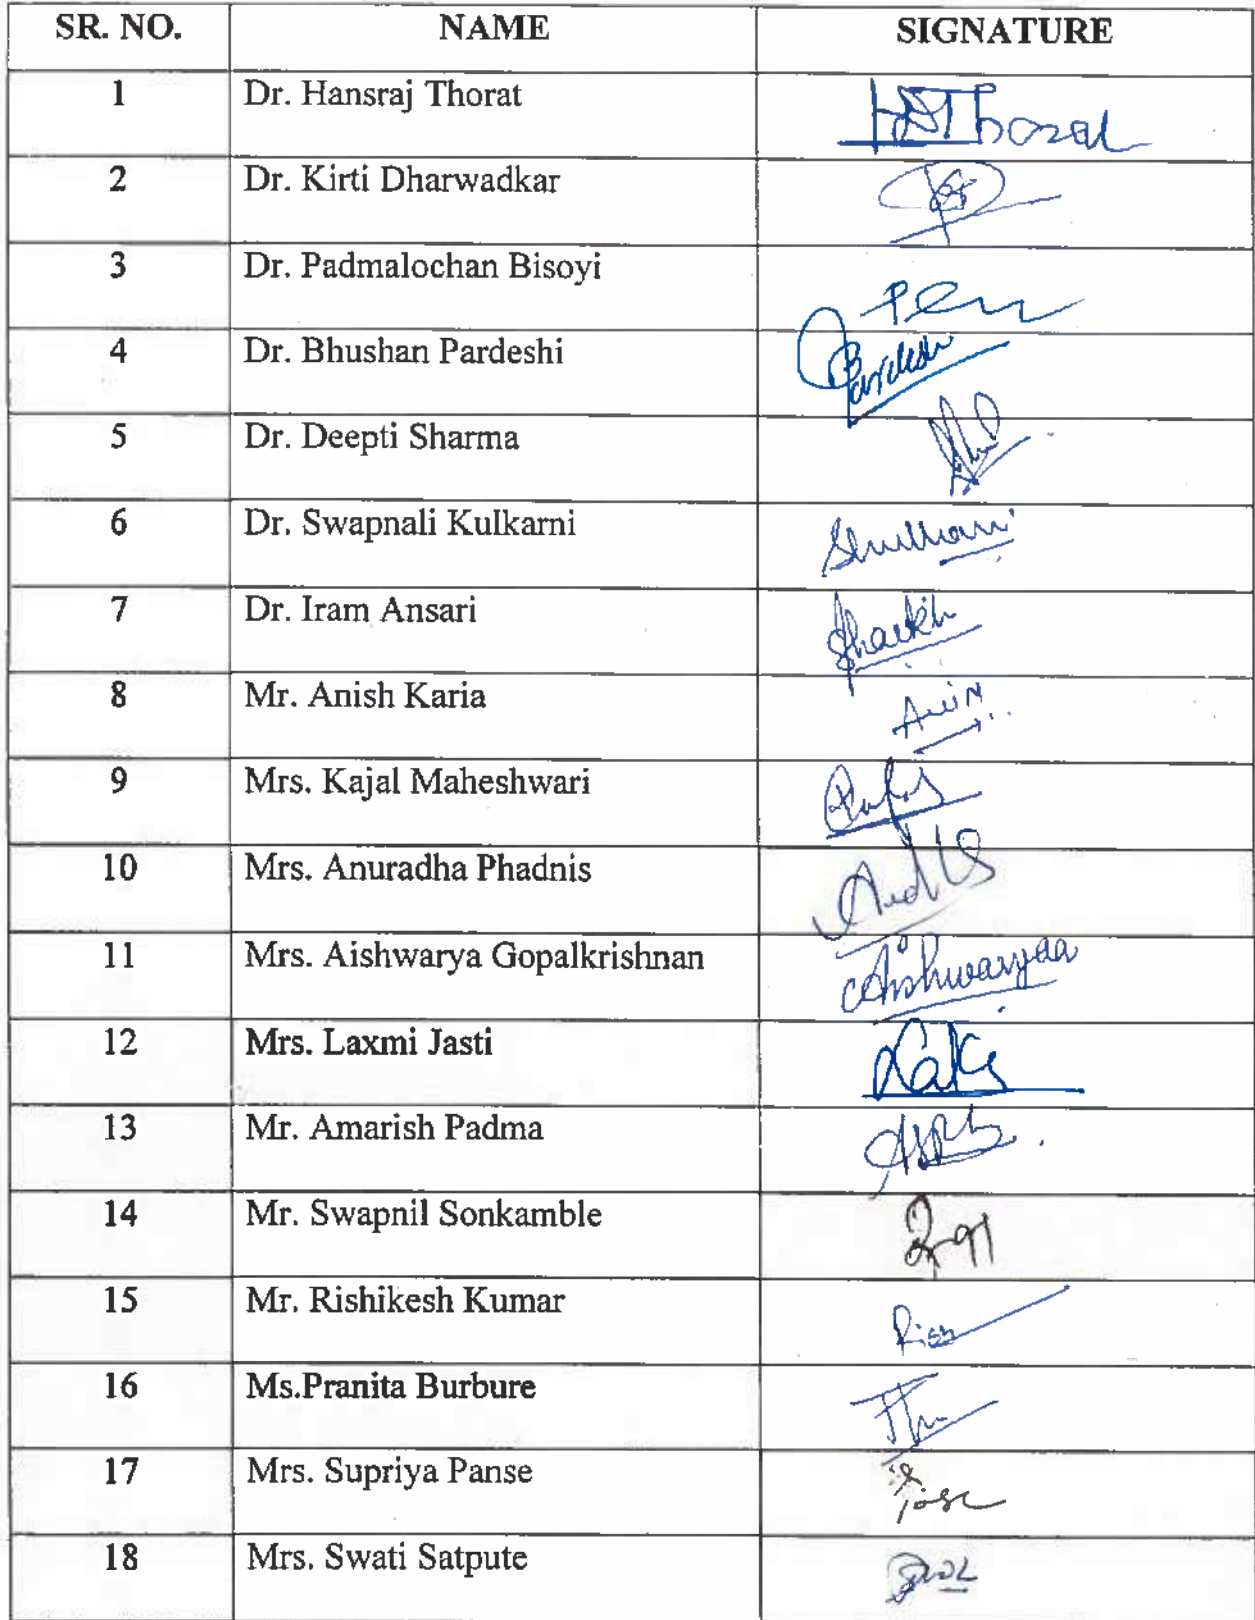 SR. NO. NAME SIGNATURE
1 Dr. Hansraj Thorat HSThorat
2 Dr. Kirti Dharwadkar
3 Dr. Padmalochan Bisoyi
4 Dr. Bhushan Pardeshi Pardeshi
5 Dr. Deepti Sharma
6 Dr. Swapnali Kulkarni
7 Dr. Iram Ansari Shaikh
8 Mr. Anish Karia
9 Mrs. Kajal Maheshwari
10 Mrs. Anuradha Phadnis
11 Mrs. Aishwarya Gopalkrishnan Aishwaryaa
12 Mrs. Laxmi Jasti
13 Mr. Amarish Padma
14 Mr. Swapnil Sonkamble
15 Mr. Rishikesh Kumar
16 Ms.Pranita Burbure
17 Mrs. Supriya Panse
18 Mrs. Swati Satpute